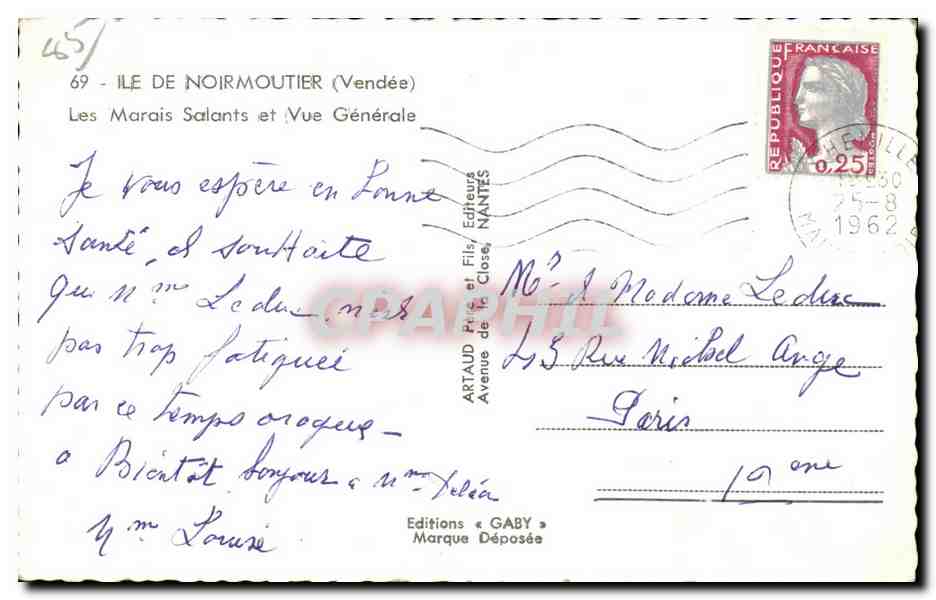 69 - ILE DE NOIRMOUTIER (Vendée)
Les Marais Salants et Vue Générale
Je vous espère en bonne
santé, et souhaite
que Mme Leduc n'est
pas trop fatiguée
par ce temps orageux
a Bientôt bonjour a Mme
Mme Louise
ARTAUD Père et Fils, Editeurs
Avenue de la Close, NANTES
REPUBLIQUE FRANÇAISE
0,25
25-8
1962
Mr et Madame Leduc
43 Rue Michel Ange
Paris
19eme
Editions « GABY »
Marque Déposée
CPAPHIL